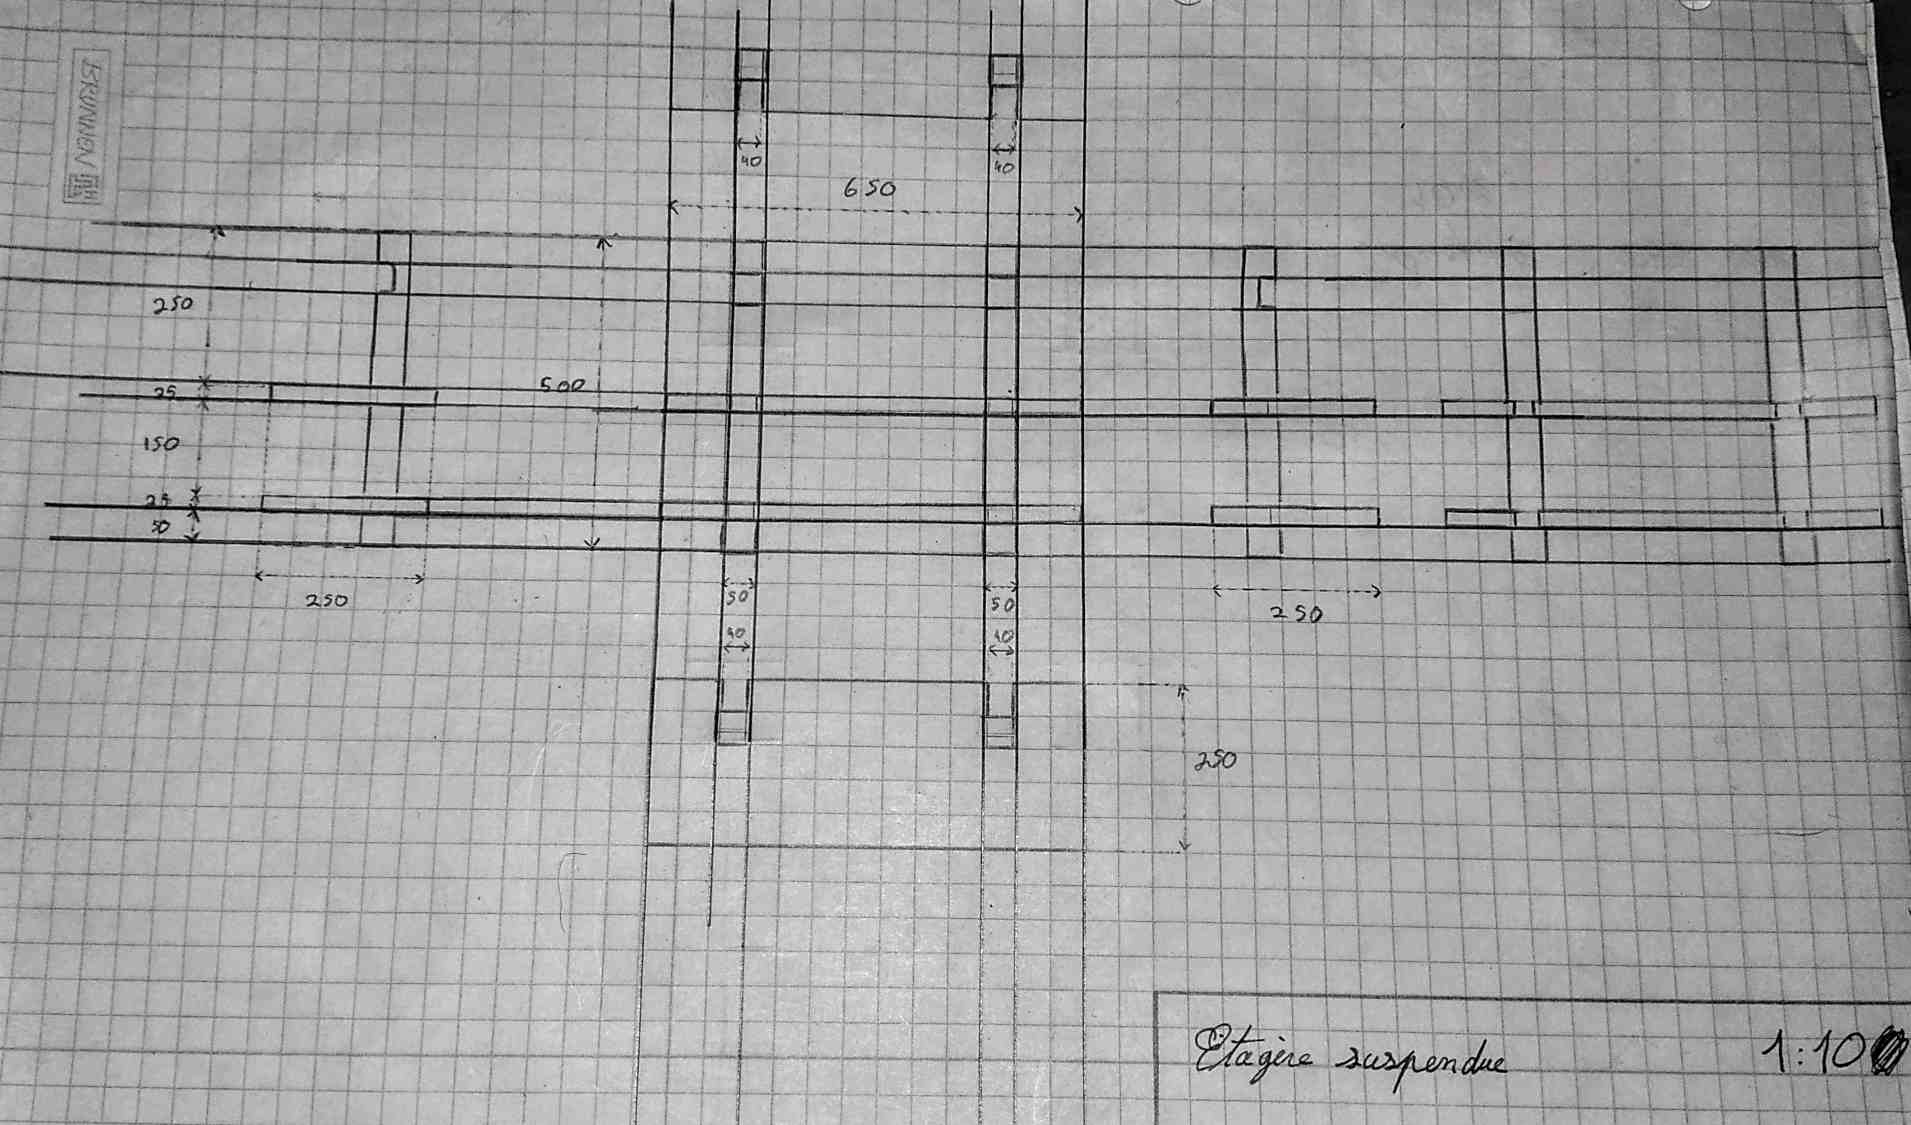 BRUNNEN
40
40
650
250
25
500
150
25
50
250
50
50
40
40
250
250
Etagère suspendue
1:10